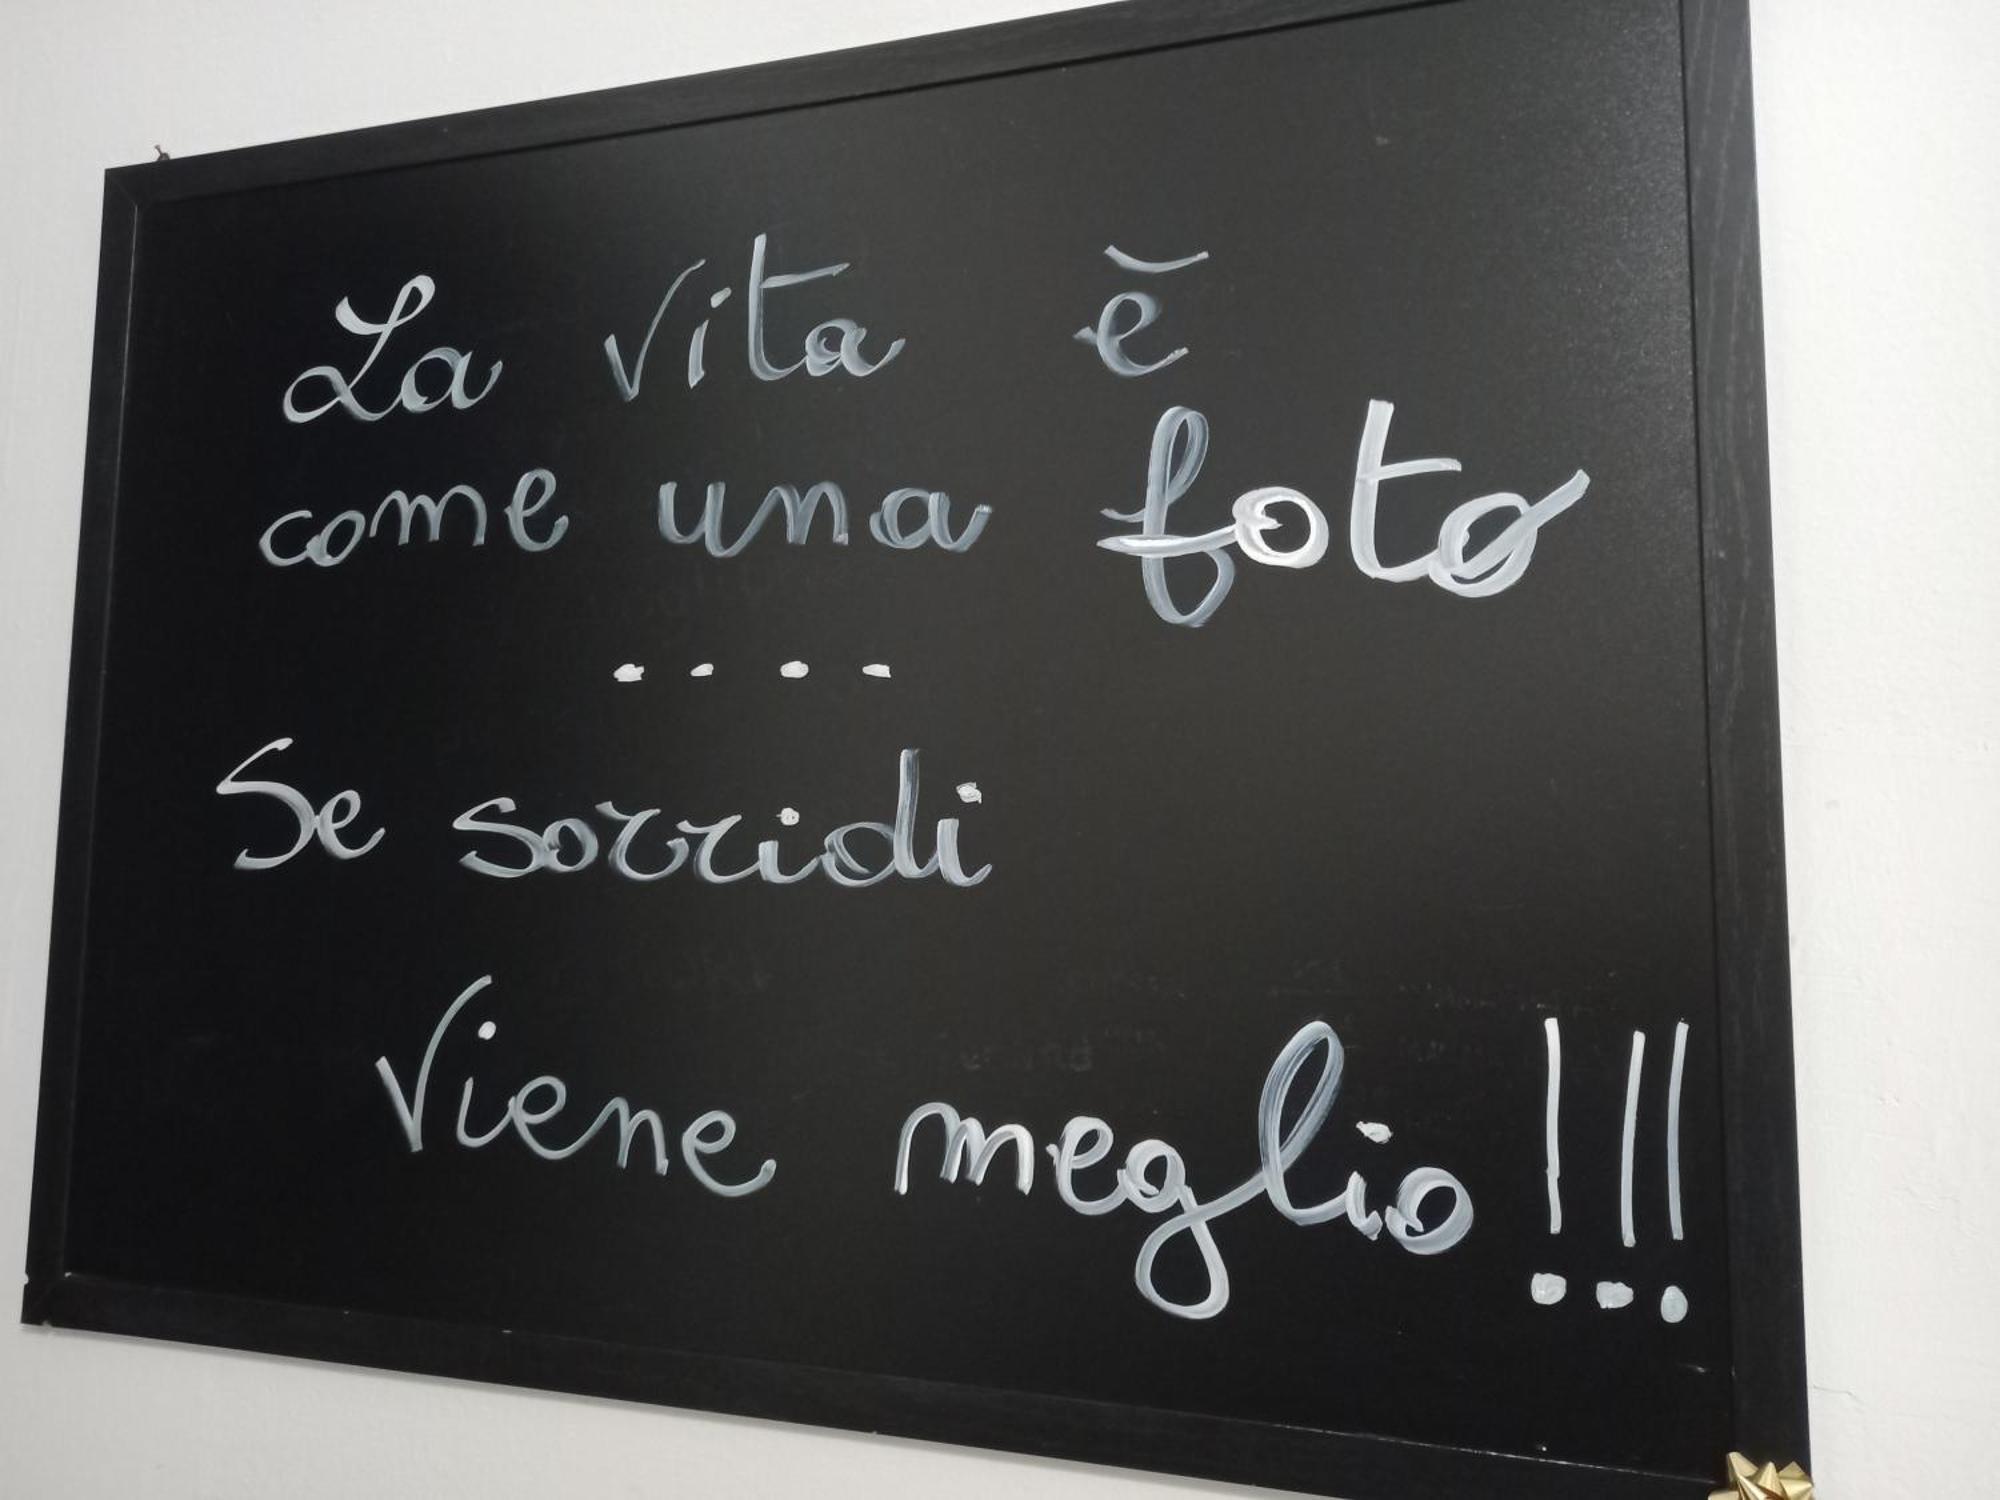 La vita è
come una foto
....
Se sorridi
Viene meglio!!!